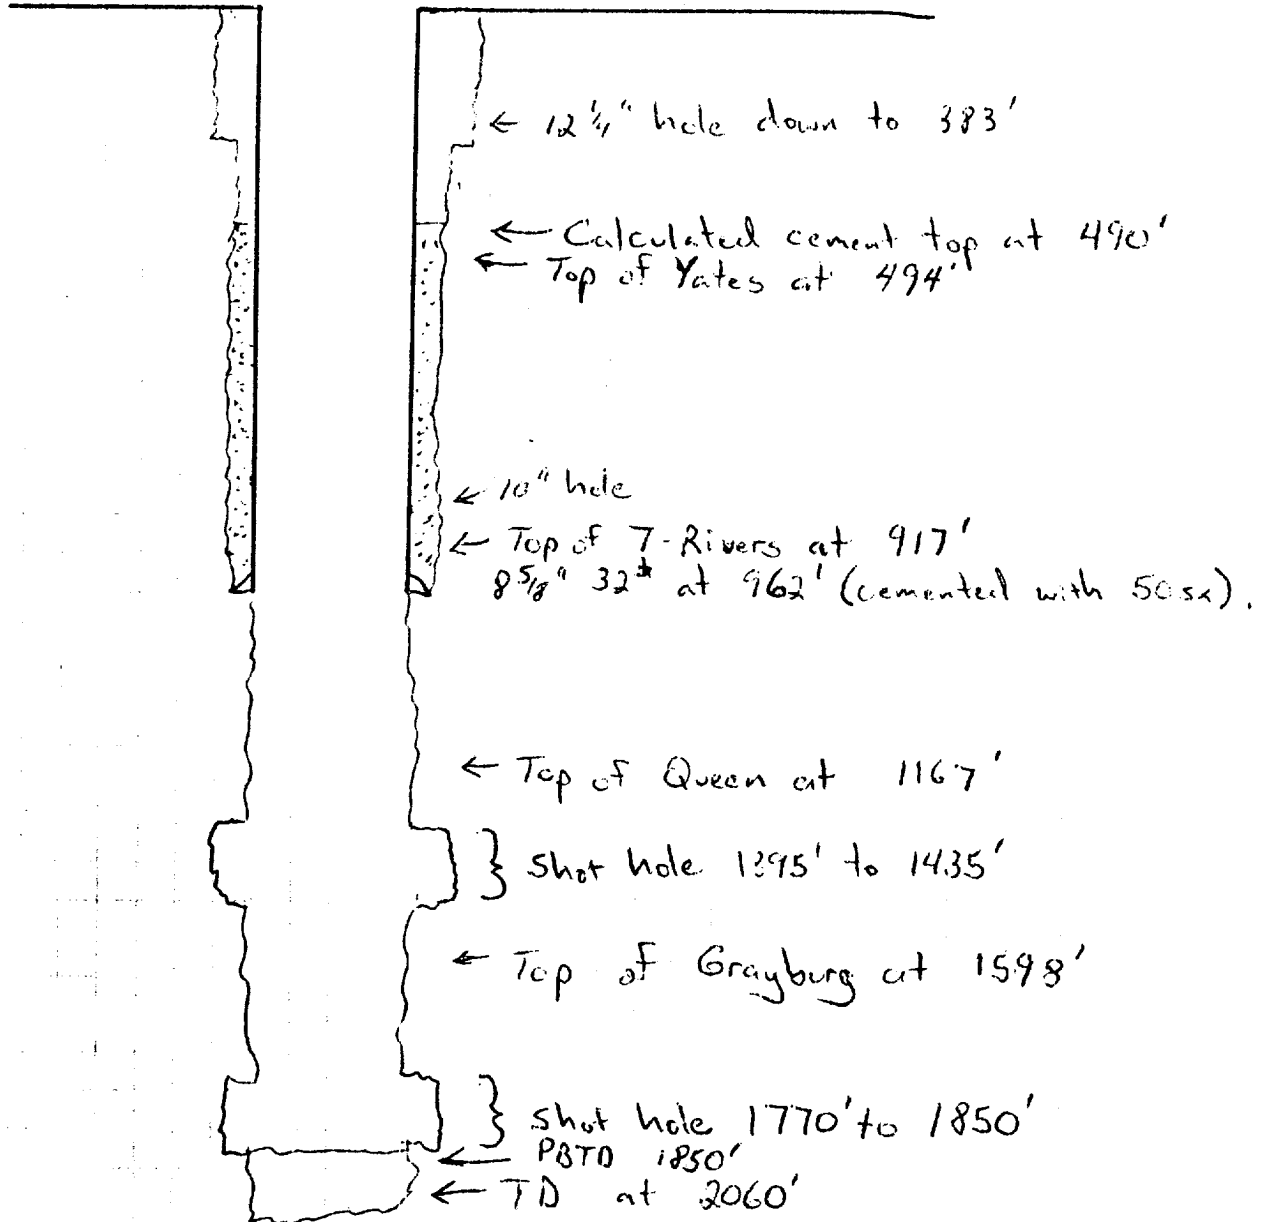 ← 12 1/4" hole down to 383'
← Calculated cement top at 490'
← Top of Yates at 494'
← 10" hole
← Top of 7-Rivers at 917'
8 5/8" 32# at 962' (cemented with 50 sx).
← Top of Queen at 1167'
} Shot hole 1395' to 1435'
← Top of Grayburg at 1598'
} Shot hole 1770' to 1850'
← PBTD 1850'
← TD at 2060'